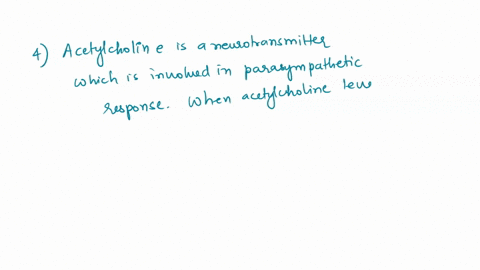 4) Acetylcholine is a neurotransmitter
which is involved in parasympathetic
response. When acetylcholine leve